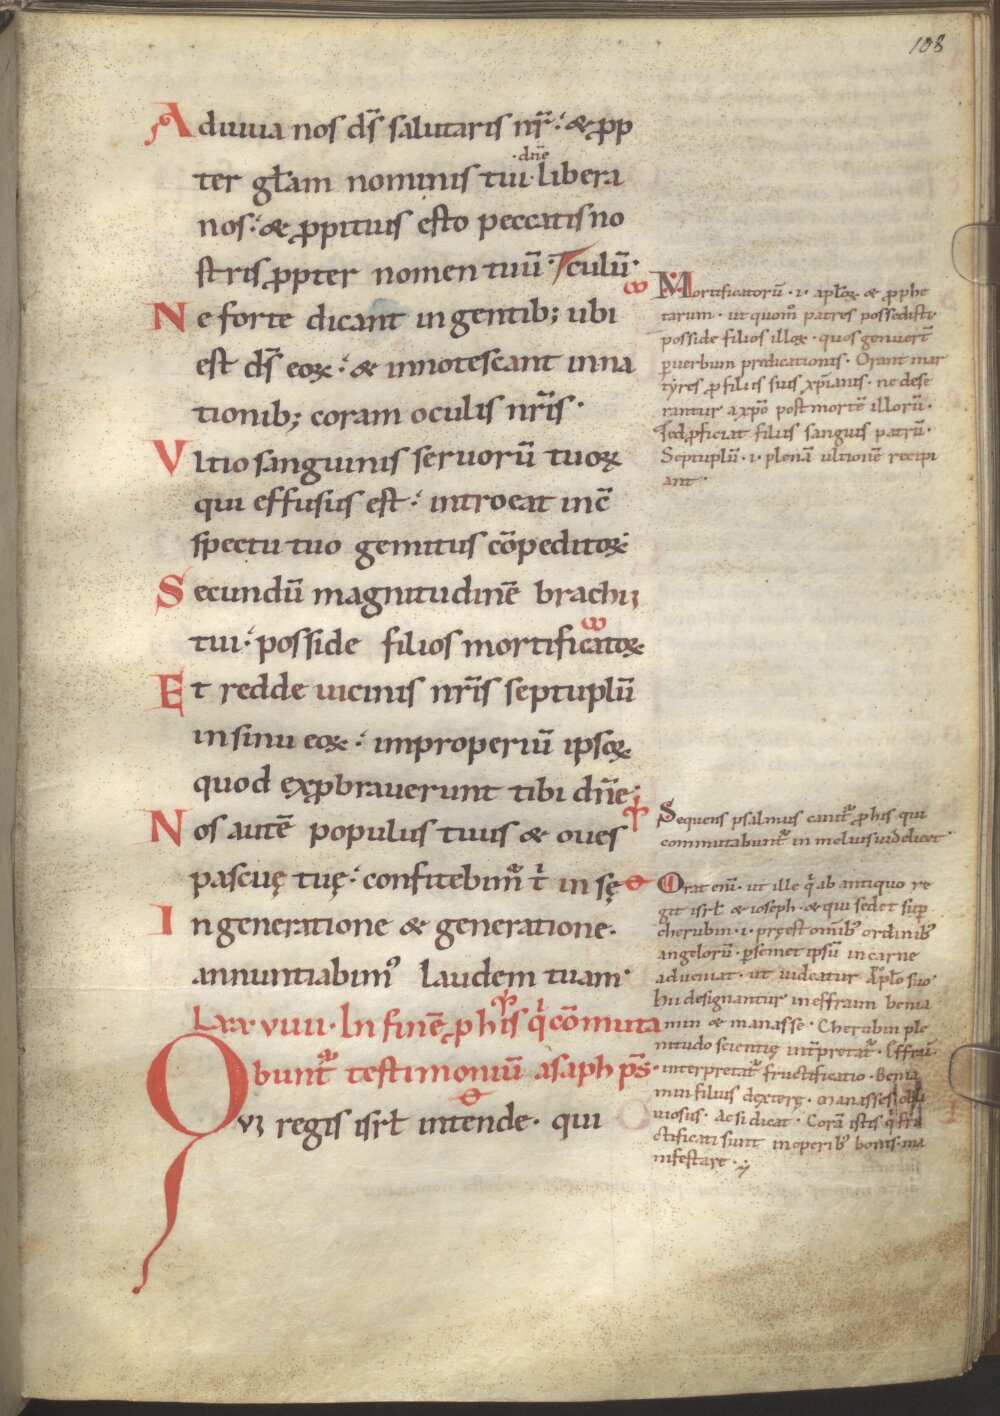 108
Adiuua nos ds̄ salutaris nr̄: & ꝓp
ter gl̄am nominis tui· libera
·dn̄e·
nos: & ꝓpitius esto peccatis no
stris ꝓpter nomen tuū· culū·
Ne forte dicant in gentib; ubi
est ds̄ eoꝝ: & innotescant in na
tionib; coram oculis nr̄is·
Vltio sanguinis seruorū tuoꝝ
qui effusus est: introeat in c̄
spectu tuo gemitus cōpeditoꝝ
Secundū magnitudinē brachii
tui: posside filios mortificatoꝝ
Et redde uicinis nr̄is septuplū
in sinu eoꝝ: improperiū ipsoꝝ
quod exꝓbrauerunt tibi dn̄e:
Nos autē populus tuus & oues
pascuę tuę: confitebimꝰ t̄ in sę
In generatione & generatione·
annuntiabimꝰ laudem tuam·
Lxxviiii· In finē ꝓ his q̄ cōmuta
bunt̄ testimoniū asaph ps̄·
Qui regis isrł intende· qui
Mortificatorū ·i· apl̄oꝝ & ꝓphe
tarum· ut quom̄ patres possedisti·
posside filios illoꝝ· quos genuert̄
ꝑ uerbum predicationis· Orant mar
tyres ꝓ filiis suis xp̄ianis· ne dese
rantur a xp̄o post mortē illorū·
sed ꝓficiat filiis sanguis patrū·
Septuplū ·i· plenā ultionē recipi
ant·
Sequens psalmus canit̄ ꝓ his qui
commutabunt̄ in melius uidelicet·
Orat eni· ut ille q̄ ab antiquo re
git isrł & ioseph· & qui sedet sup̄
cherubin ·i· pręest omībꝰ ordinibꝰ
angelorū· ꝑ semet ipsū in carne
adueniat· ut uideatur apl̄o suo·
hii designantur in effraim benia
min & manasse· Cherubin ple
nitudo scientię int̄pretat̄· Effraī·
interpretat̄ fructificatio· Benia
min filius dexterę· Manasses obli
uiosus· Ac si dicat· Corā istis q̄ fru
ctificati sunt in operibꝰ bonis· ma
nifestare·